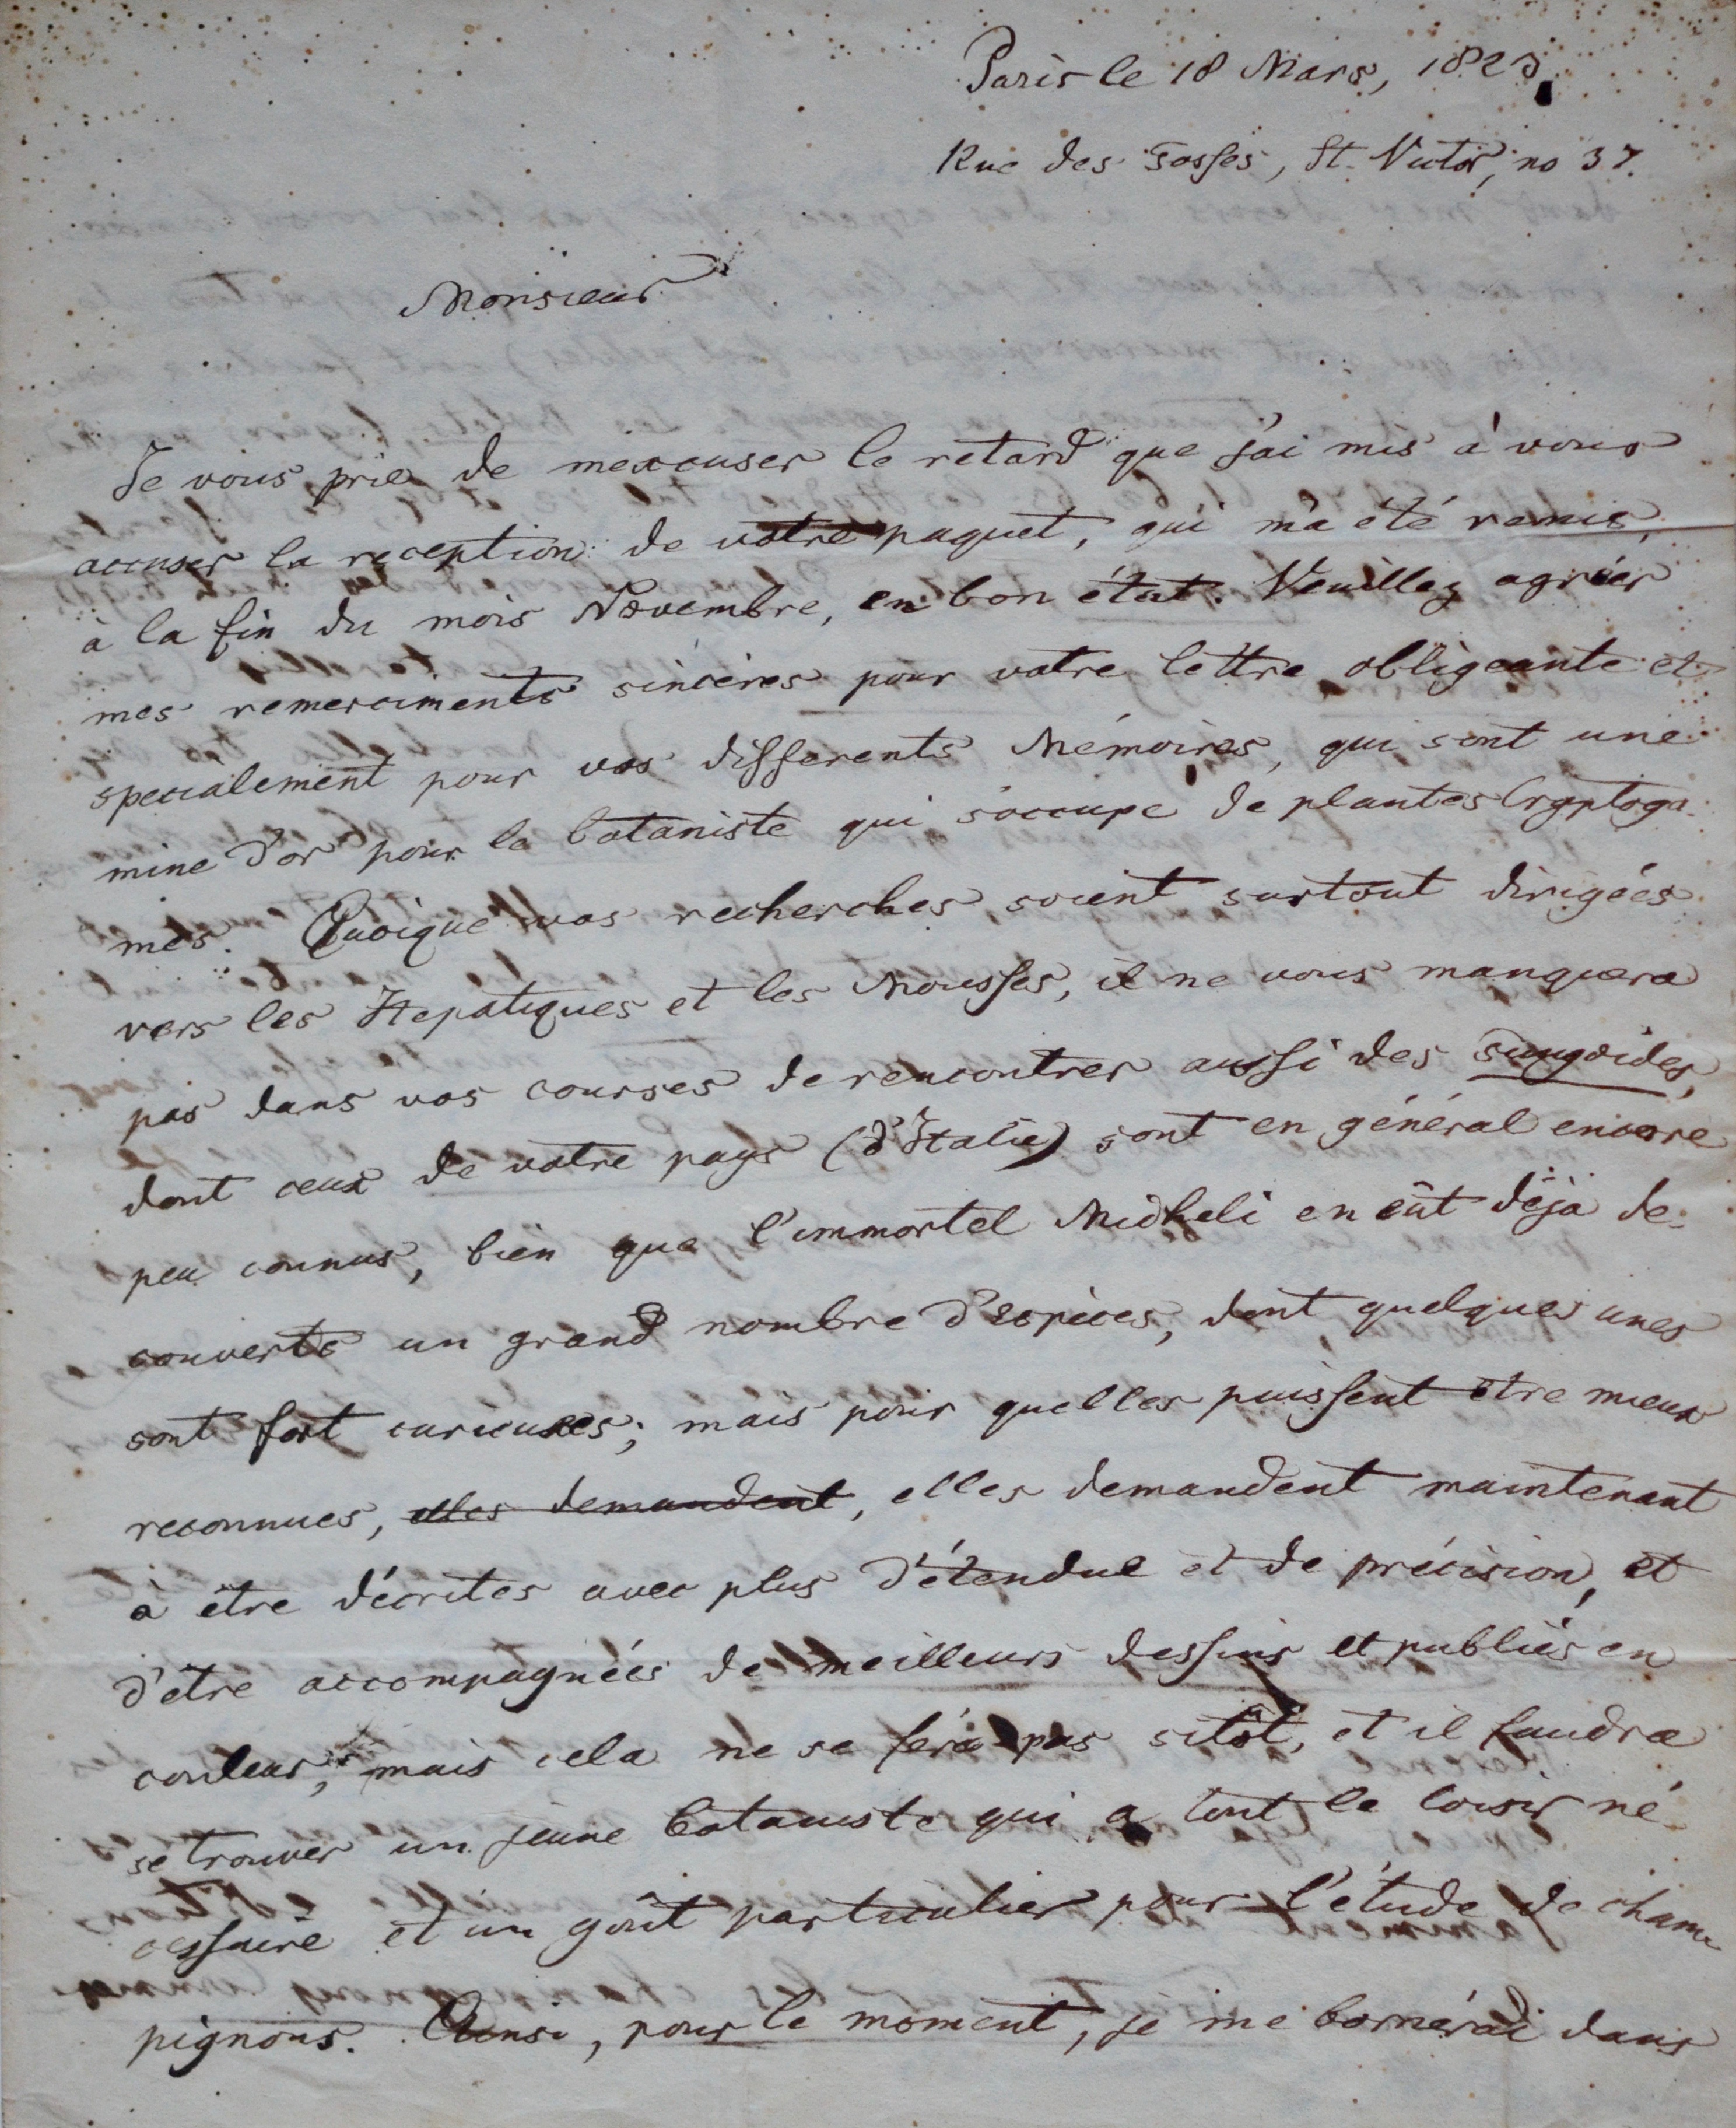 Paris le 18 Mars, 182
Rue des Fosses, St. Victor, no 37.
Monsieur
Je vous prie de mexcuser le retard que j'ai mis à vous
accuser la reception de votre paquet, qui m'a été remis,
à la fin du mois Novembre, en bon état. Veuillez agréer
mes remerciments sincères pour votre lettre obligeante et
specialement pour vos differents Mémoires, qui sont une
mine d'or pour le botaniste qui s'occupe de plantes Cryptoga-
mes. Quoique vos recherches soient surtout dirigées
vers les Hepatiques et les Mousses, il ne vous manquera
pas dans vos courses de rencontrer aussi des fungoides,
dont ceux de votre pays (d'Italie) sont en général encore
peu connus, bien que l'immortel Micheli en eût déjà de-
couverts un grand nombre d'espèces, dont quelques unes
sont fort curieuses; mais pour quelles puissent être mieux
reconnues, elles demandent, elles demandent maintenant
à être décrites avec plus d'étendue et de précision, et
d'être accompagnées de meilleurs dessins et publiés en
couleur, mais cela ne se fera pas sitôt, et il faudra
se trouver un jeune botaniste qui a tout le loisir né-
cessaire et un goût particulier pour l'étude de cham-
pignons. Ainsi, pour le moment, je me bornerai dans